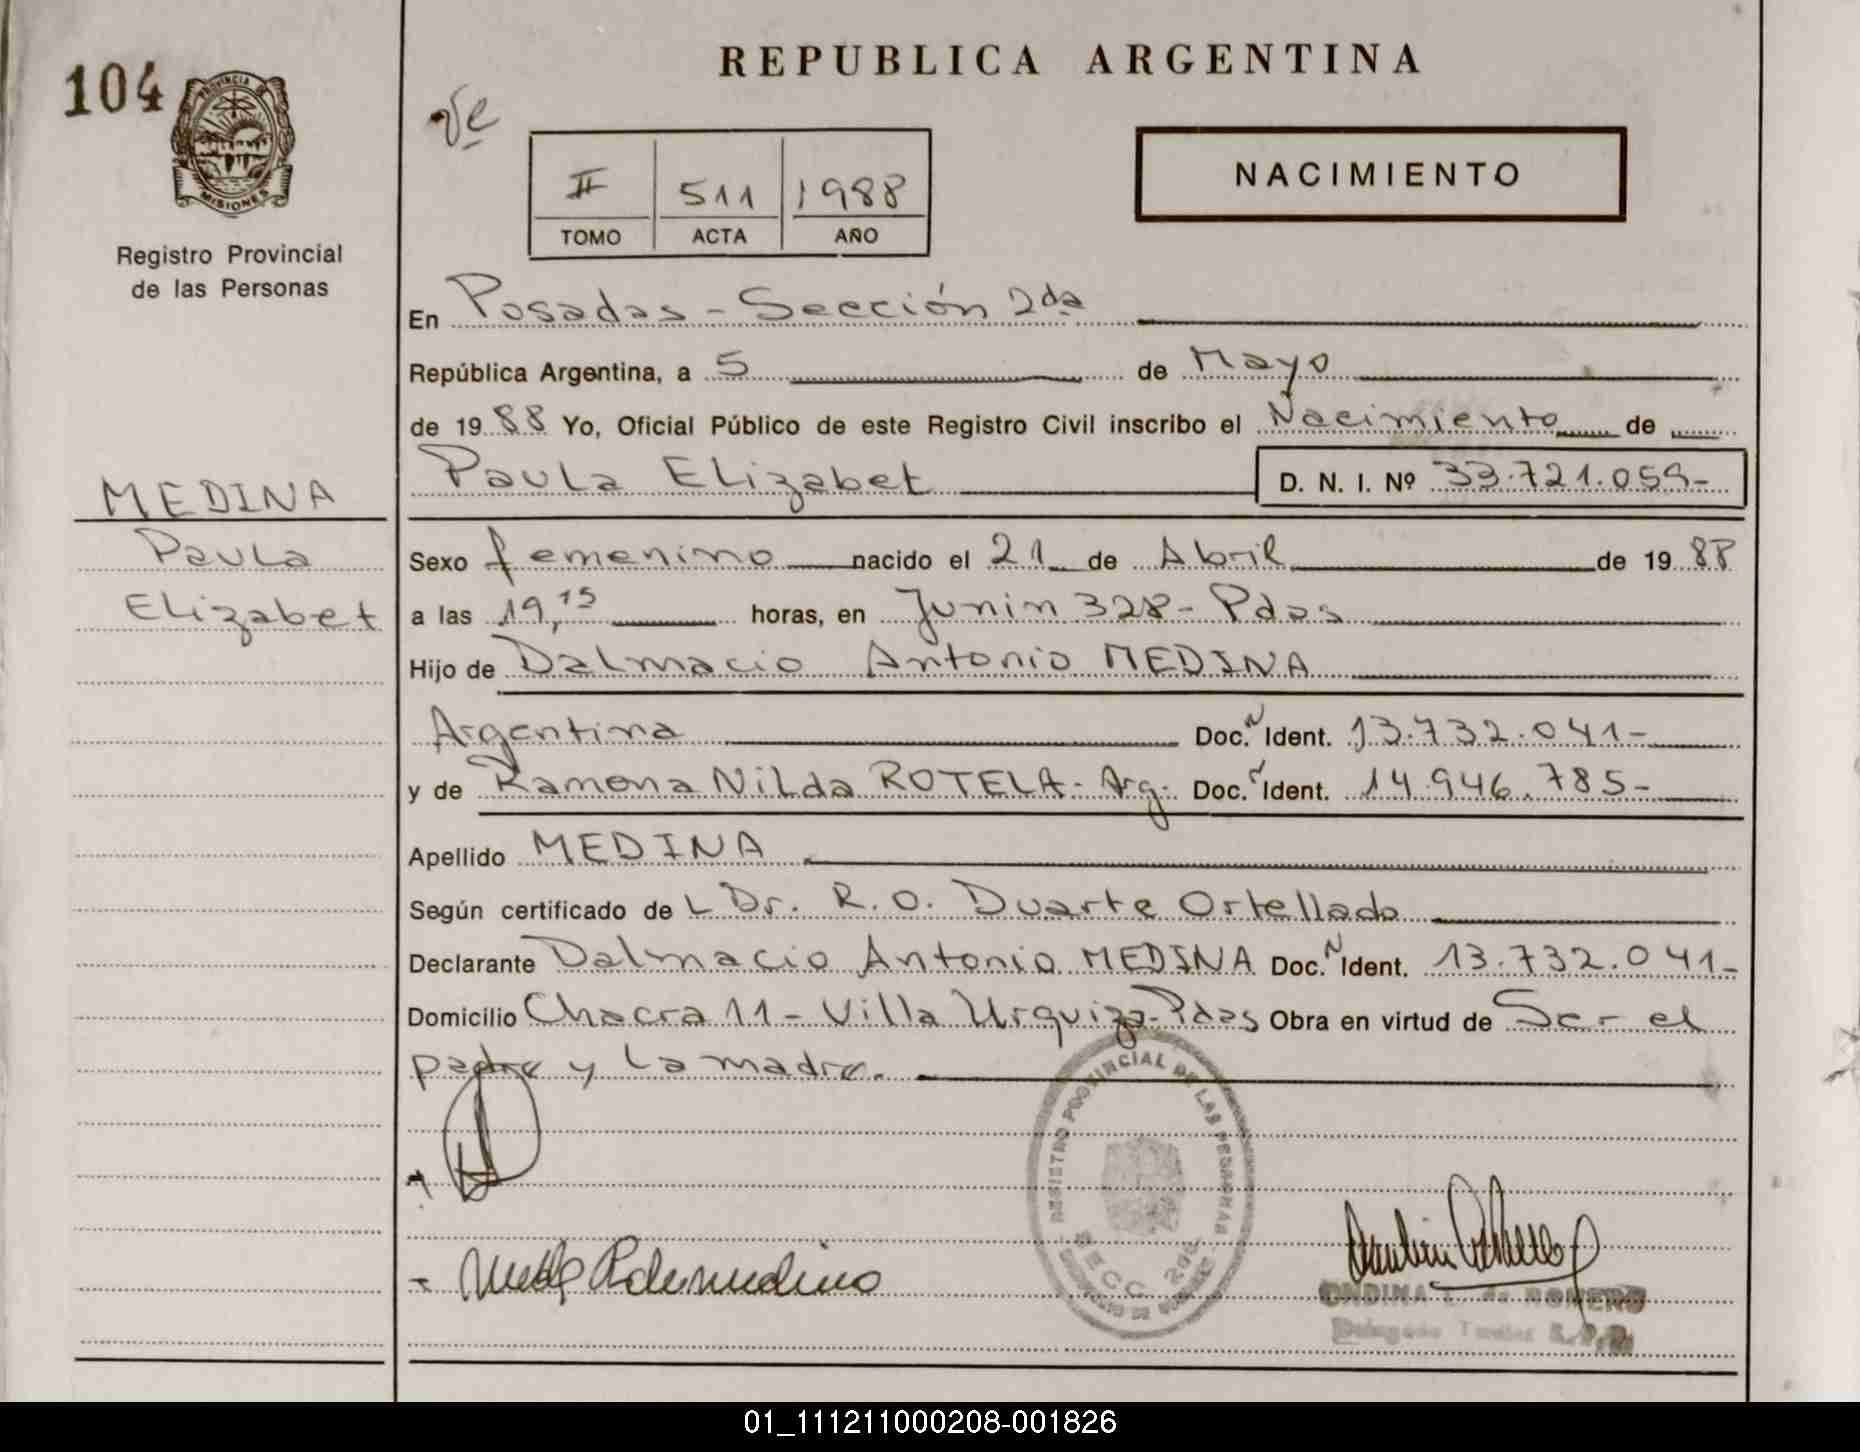 REPUBLICA ARGENTINA
104
PROVINCIA DE
MISIONES
Registro Provincial
de las Personas
II 511 1988
TOMO ACTA AÑO
NACIMIENTO
En Posadas - Sección 2da
República Argentina, a 5 de Mayo
de 1988 Yo, Oficial Público de este Registro Civil inscribo el Nacimiento de
Paula Elizabet D. N. I. Nº 33.721.059-
MEDINA
Paula
Elizabet
Sexo femenino nacido el 21 de Abril de 1988
a las 19,15 horas, en Junin 328 - Pdas
Hijo de Dalmacio Antonio MEDINA
Argentina Doc. N Ident. 13.732.041-
y de Ramona Nilda ROTELA - Arg. Doc. Ident. 14.946.785-
Apellido MEDINA
Según certificado de L Dr. R. O. Duarte Ortellado
Declarante Dalmacio Antonio MEDINA Doc. N Ident. 13.732.041-
Domicilio Chacra 11 - Villa Urquiza - Pdas Obra en virtud de Ser el
padre y la madre.
REGISTRO PROVINCIAL DE LAS PERSONAS
SECC. 2da
ONDINA L. de ROMERO
01_111211000208-001826